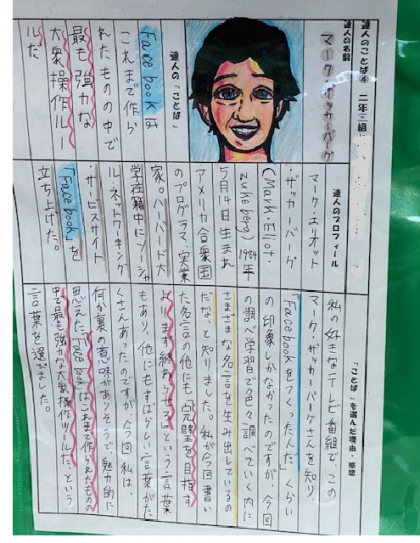 達人のことば④ 二年三組
達人の名前
マーク・ザッカーバーグ
達人の「ことば」
Facebookは
これまで作ら
れたものの中で
最も強力な
大衆操作ルー
ルだ
達人のプロフィール
マーク・エリオット
・ザッカーバーグ
(Mark・Eliot・
zuckerberg) 1984年
5月14日生まれ
アメリカ合衆国
のプログラマ、実業
家。ハーバード大
学在籍中にソーシャ
ル・ネットワーキング
・サービスサイト
「Facebook」を
立ち上げた。
「ことば」を選んだ理由・感想
私の好きなテレビ番組で、この
マークザッカーバーグさんを知り、
「Facebookをつくった人だ」くらい
の印象しかなかったのですが、今回
の調べ学習で色々調べていく内に
さまざまな名言を生み出しているの
だな。と知りました。私が今回書い
た名言の他にも「完璧を目指す
よりまず終わらせろ」という言葉
もあり、他にもすばらしい言葉がた
くさんあったのですが今回私は、
何か裏の意味がありそうで魅力的に
思えた「Facebookはこれまで作られたものの
中で最も強力な大衆操作ツールだ」という
言葉を選びました。